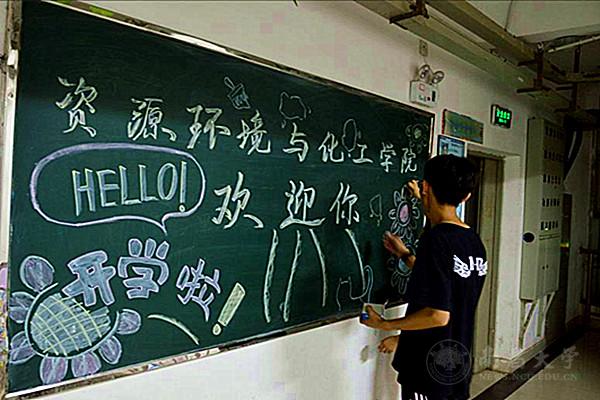 资源环境与化工学院
HELLO!
欢迎你
开学啦!
NEWS.NCU.EDU.CN